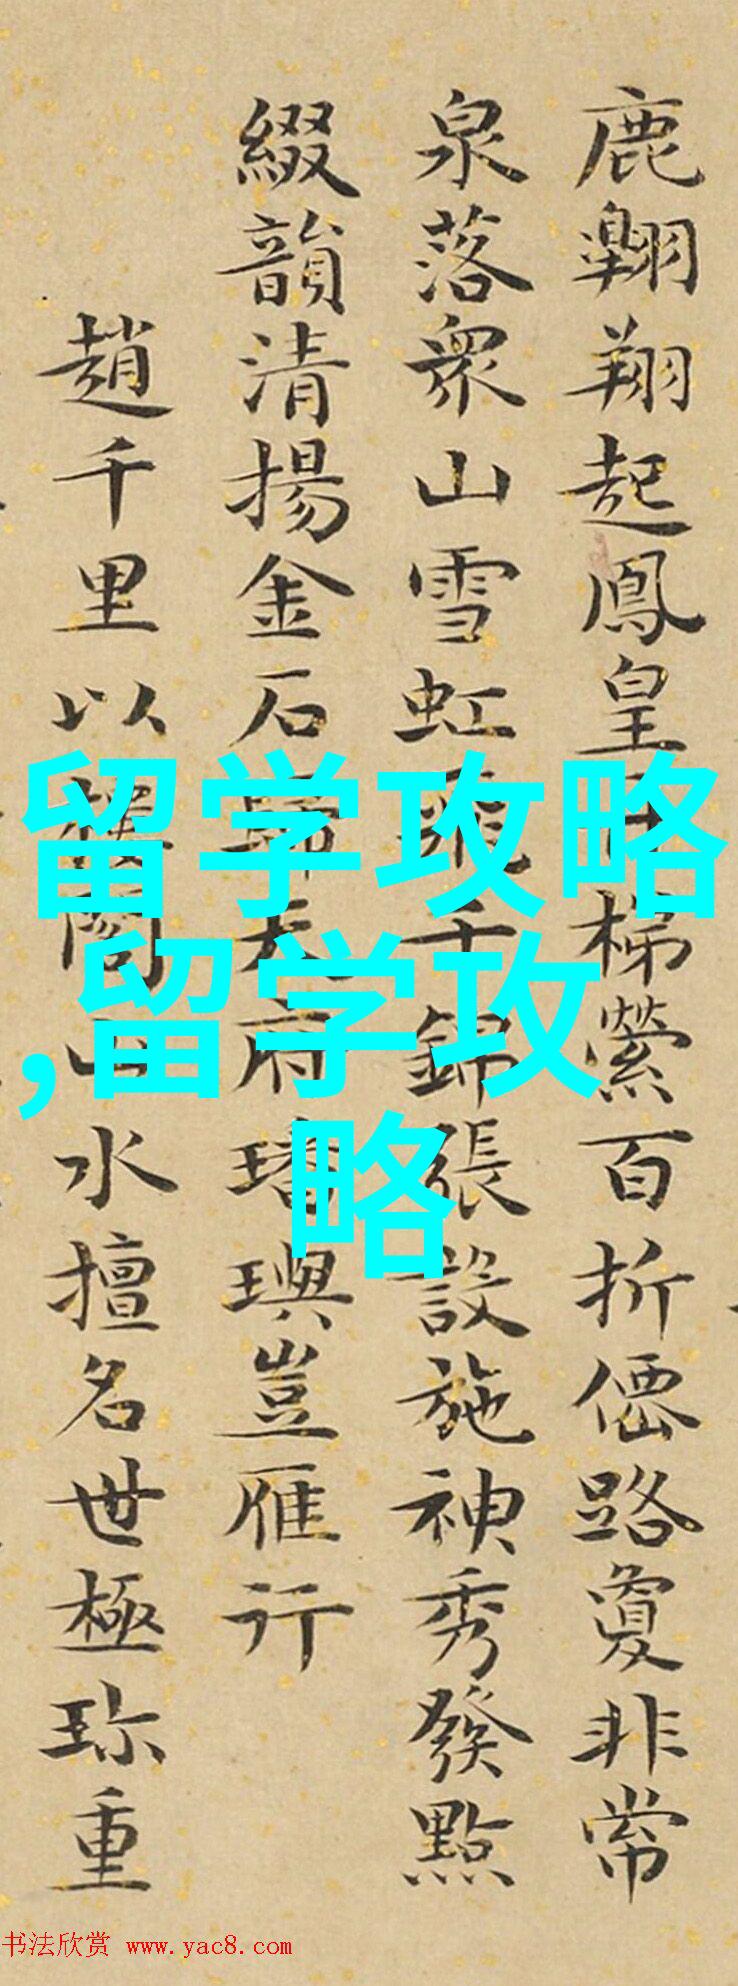 鹿翱翔起鳳皇梯縈百折僊路敻非常
泉落衆山雪虹飛千錦張設施神秀發點
綴韻清揚金石歸天府璠璵豈雁行
趙千里以樓閣山水擅名世極珎重
留学攻略
,留学攻
略
书法欣赏 www.yac8.com